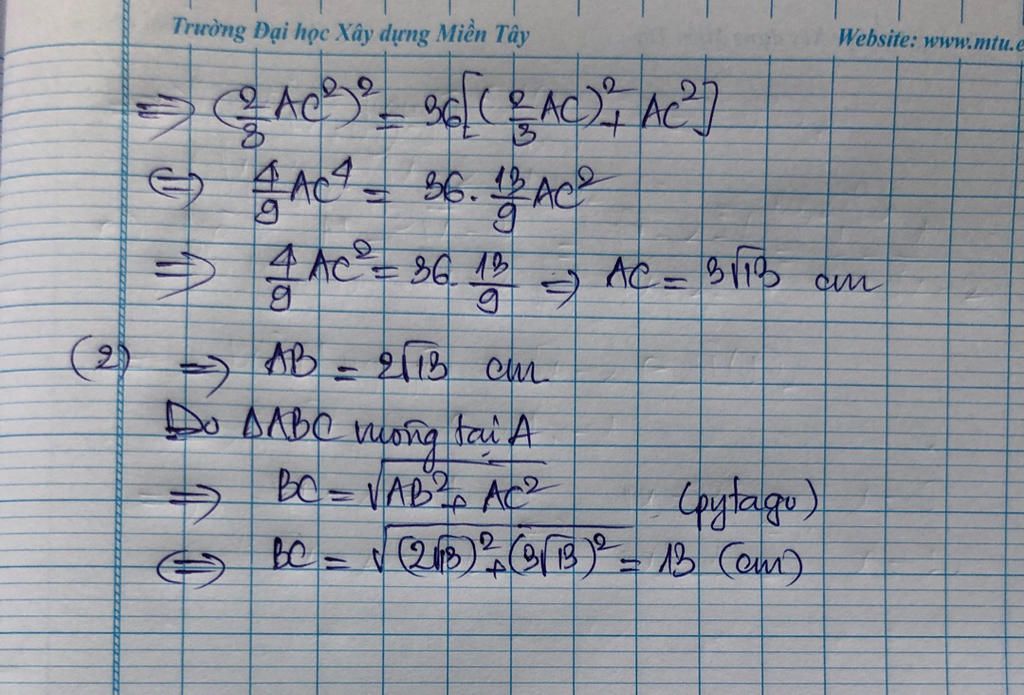 Trường Đại học Xây dựng Miền Tây Website: www.mtu.e
⇒ (2/3 AC²)² = 36[(2/3 AC)² + AC²]
⇔ 4/9 AC⁴ = 36. 13/9 AC²
⇒ 4/9 AC² = 36. 13/9 ⇒ AC = 3√13 cm
(2) ⇒ AB = 2√13 cm
Do ΔABC vuông tại A
⇒ BC = √(AB² + AC²) (pytago)
⇔ BC = √((2√13)² + (3√13)²) = 13 (cm)